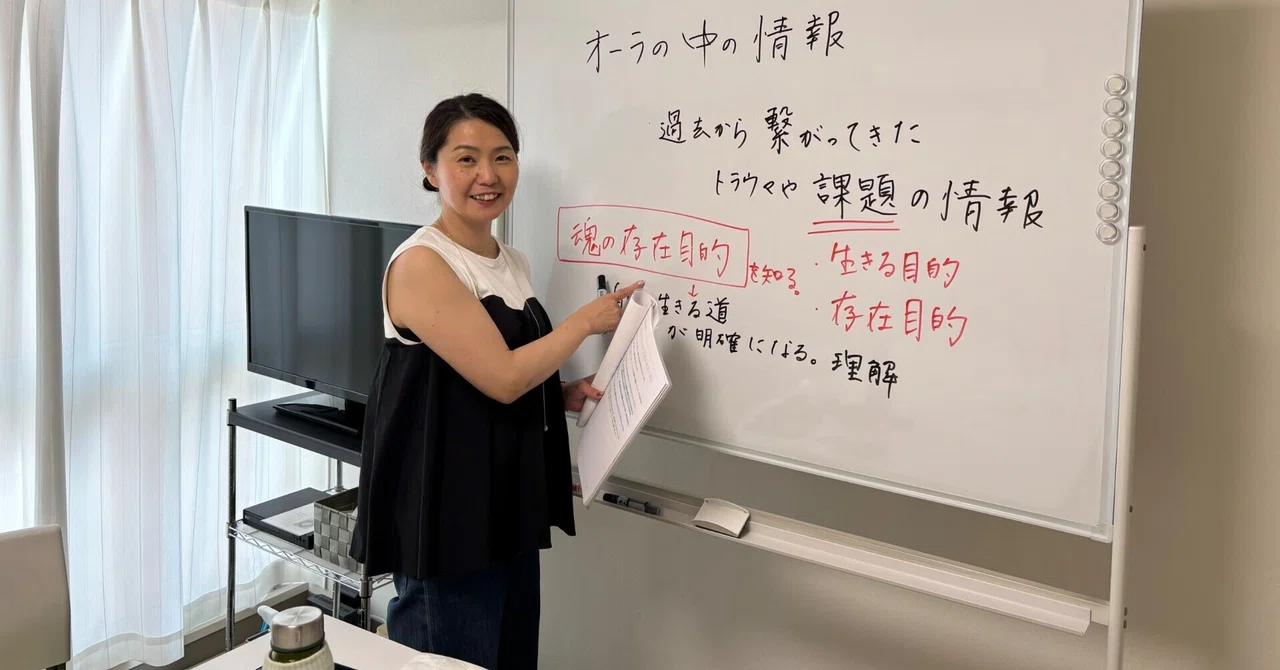 オーラの中の情報
過去から繋がってきた
トラウマや課題の情報
魂の存在目的を知る。
・生きる目的
・存在目的
↓
生きる道
が明確になる。
理解